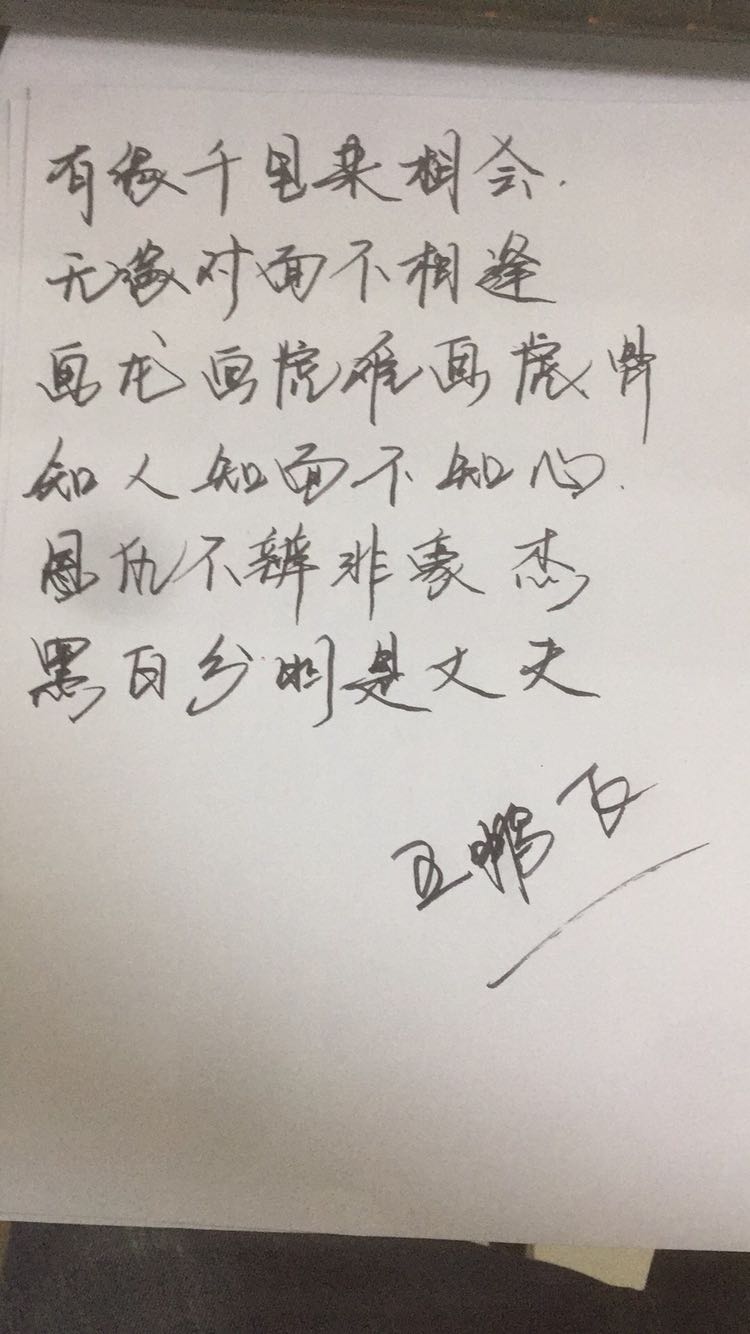 有缘千里来相会.
无缘对面不相逢
画龙画虎难画虎骨
知人知面不知心.
恩仇不辨非豪杰
黑白分明是丈夫
王鹏飞